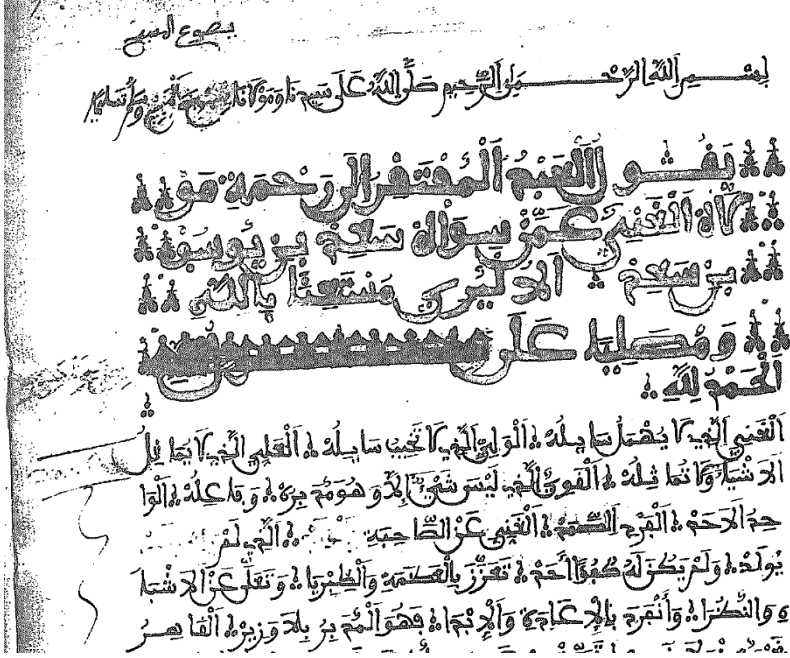 بسم الله الرحمن الرحيم صلى الله على سيدنا ومولانا
يقول العبد المفتقر الى رحمة مو
لاه الغني عمن سواه سعيد بن يوسف
بن سعيد مستعينا بالله
ومصليا على
الحمد لله
الغني الذي لا يهمل سايله الولي الذي لا تخيب سايله العلي الذي لا يماثل
الاشياء ولا تماثله القوي الذي ليس شيء إلا وهو مدبره وفاعله الوا
حد الاحد الفرد الصمد الغني عن الصاحبة الذي لم
يولد ولم يكن له كفؤا أحد تعزز بالعظمة والكبريا وتعلى عن الاشبا
ه والنظرا وانفرد بالإعادة والإبدا فهو المدبر بلا وزير القاهر